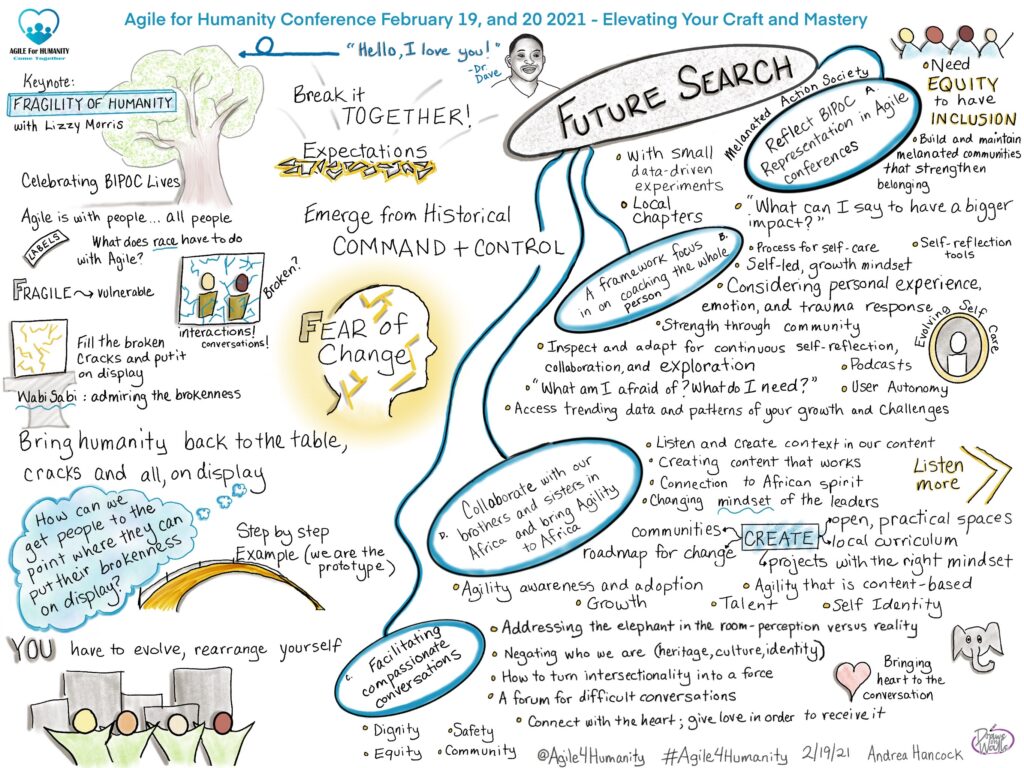 Agile for Humanity Conference February 19, and 20 2021 - Elevating Your Craft and Mastery
AGILE For HUMANITY
Come Together
Keynote:
FRAGILITY OF HUMANITY
with Lizzy Morris
Celebrating BIPOC Lives
Agile is with people... all people
LABELS
What does race have to do
with Agile?
FRAGILE → vulnerable
Broken?
interactions!
conversations!
Fill the broken
cracks and put it
on display
Wabi Sabi : admiring the brokenness
Bring humanity back to the table,
cracks and all, on display
How can we
get people to the
point where they can
put their brokenness
on display?
Step by step
Example (we are the
prototype)
YOU have to evolve, rearrange yourself
"Hello, I love you!"
-Dr.
Dave
Break it
TOGETHER!
Expectations
Emerge from Historical
COMMAND + CONTROL
FEAR of
Change
FUTURE SEARCH
With small
data-driven
experiments
Local
chapters
Melanated Action Society
A.
Reflect BIPOC
Representation in Agile
conferences
Need
EQUITY
to have
INCLUSION
Build and maintain
melanated communities
that strengthen
belonging
B.
A framework focus
in on coaching the whole
person
"What can I say to have a bigger
impact?"
Process for self-care
Self-reflection
tools
Self-led, growth mindset
Considering personal experience,
emotion, and trauma response
Strength through community
Evolving Self Care
Inspect and adapt for continuous self-reflection,
collaboration, and exploration
Podcasts
"What am I afraid of? What do I need?"
User Autonomy
Access trending data and patterns of your growth and challenges
D.
Collaborate with our
brothers and sisters in
Africa and bring Agility
to Africa
Listen and create context in our content
Creating content that works
Connection to African spirit
Changing mindset of the leaders
Listen
more
communities
roadmap for change
CREATE
open, practical spaces
local curriculum
projects with the right mindset
Agility awareness and adoption
Agility that is content-based
Growth
Talent
Self Identity
C.
Facilitating
compassionate
conversations
Addressing the elephant in the room-perception versus reality
Negating who we are (heritage, culture, identity)
How to turn intersectionality into a force
A forum for difficult conversations
Connect with the heart; give love in order to receive it
Bringing
heart to the
conversation
Dignity
Safety
Equity
Community
@Agile4Humanity #Agile4Humanity 2/19/21 Andrea Hancock
Draws
on
Walls